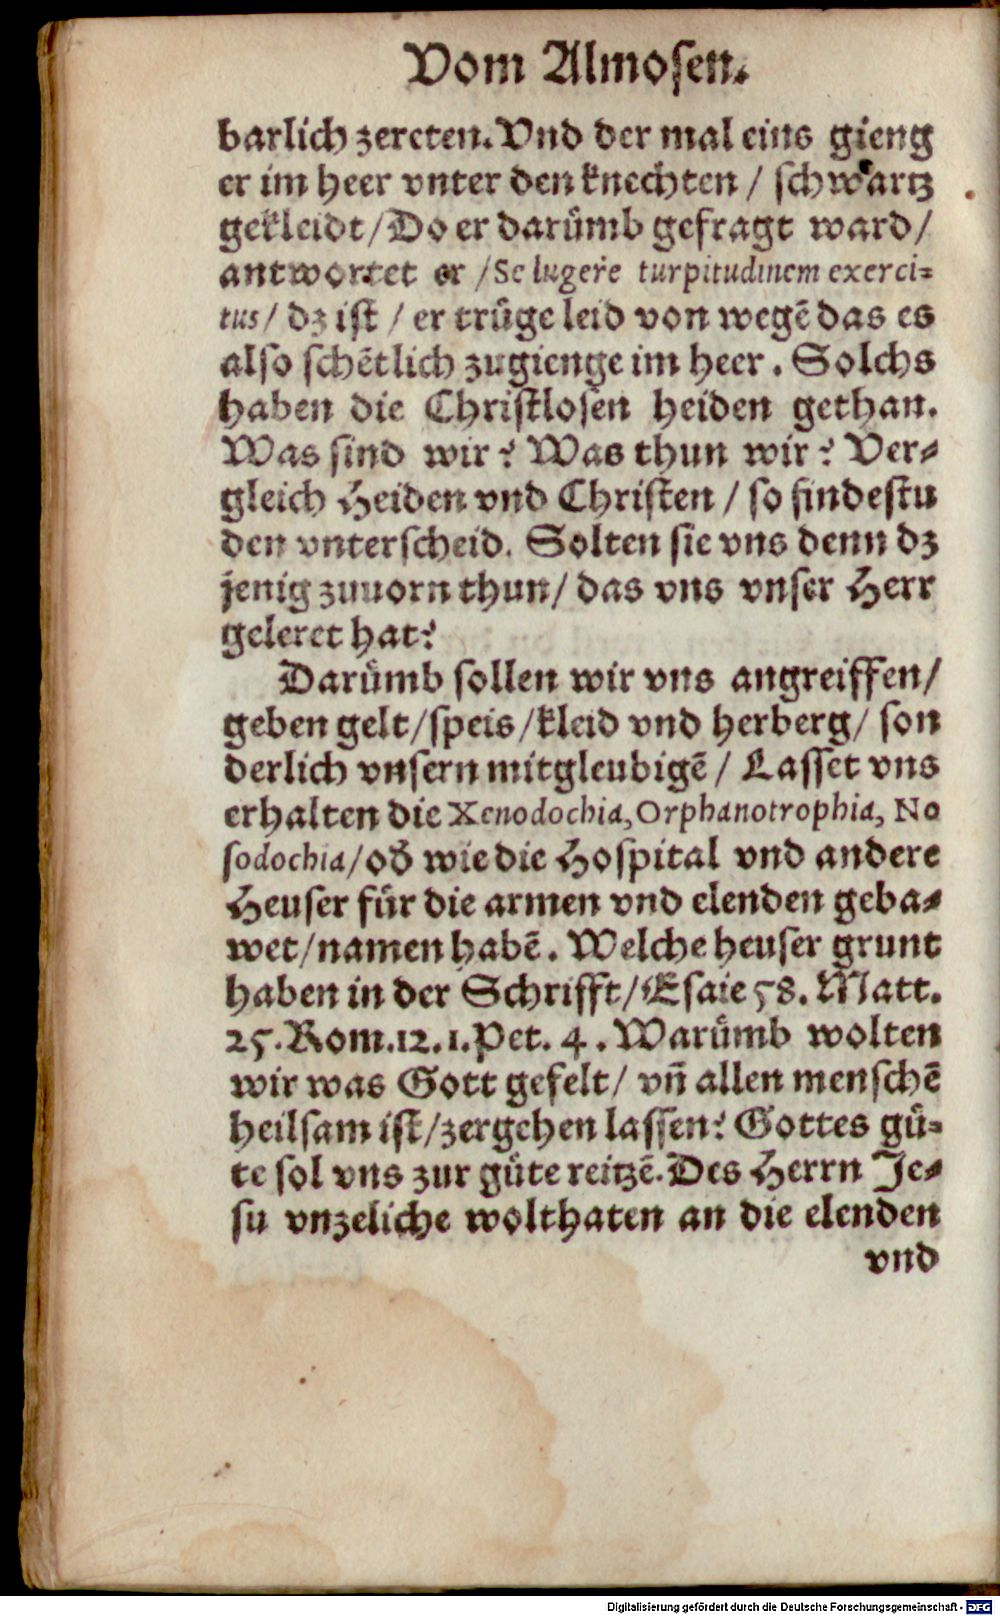 Vom Almosen.
barlich zereten. Vnd der mal eins gieng
er im heer vnter den knechten / schwartz
gekleidt / Do er darümb gefragt ward /
antwortet er / Se lugere turpitudinem exerci=
tus / dz ist / er trüge leid von wegē das es
also schētlich zugienge im heer. Solchs
haben die Christlosen heiden gethan.
Was sind wir? Was thun wir? Ver=
gleich Heiden vnd Christen / so findestu
den vnterscheid. Solten sie vns denn dz
jenig zuuorn thun / das vns vnser Herr
geleret hat?
Darümb sollen wir vns angreiffen /
geben gelt / speis / kleid vnd herberg / son
derlich vnsern mitgleubigē / Lasset vns
erhalten die Xenodochia, Orphanotrophia, No
sodochia / od̕ wie die Hospital vnd andere
Heuser für die armen vnd elenden geba=
wet / namen habē. Welche heuser grunt
haben in der Schrifft / Esaie 58. Matt.
25. Rom. 12. 1. Pet. 4. Warümb wolten
wir was Gott gefelt / vn̄ allen menschē
heilsam ist / zergehen lassen? Gottes gü=
te sol vns zur güte reitzē. Des Herrn Je=
su vnzeliche wolthaten an die elenden
vnd
Digitalisierung gefördert durch die Deutsche Forschungsgemeinschaft - DFG